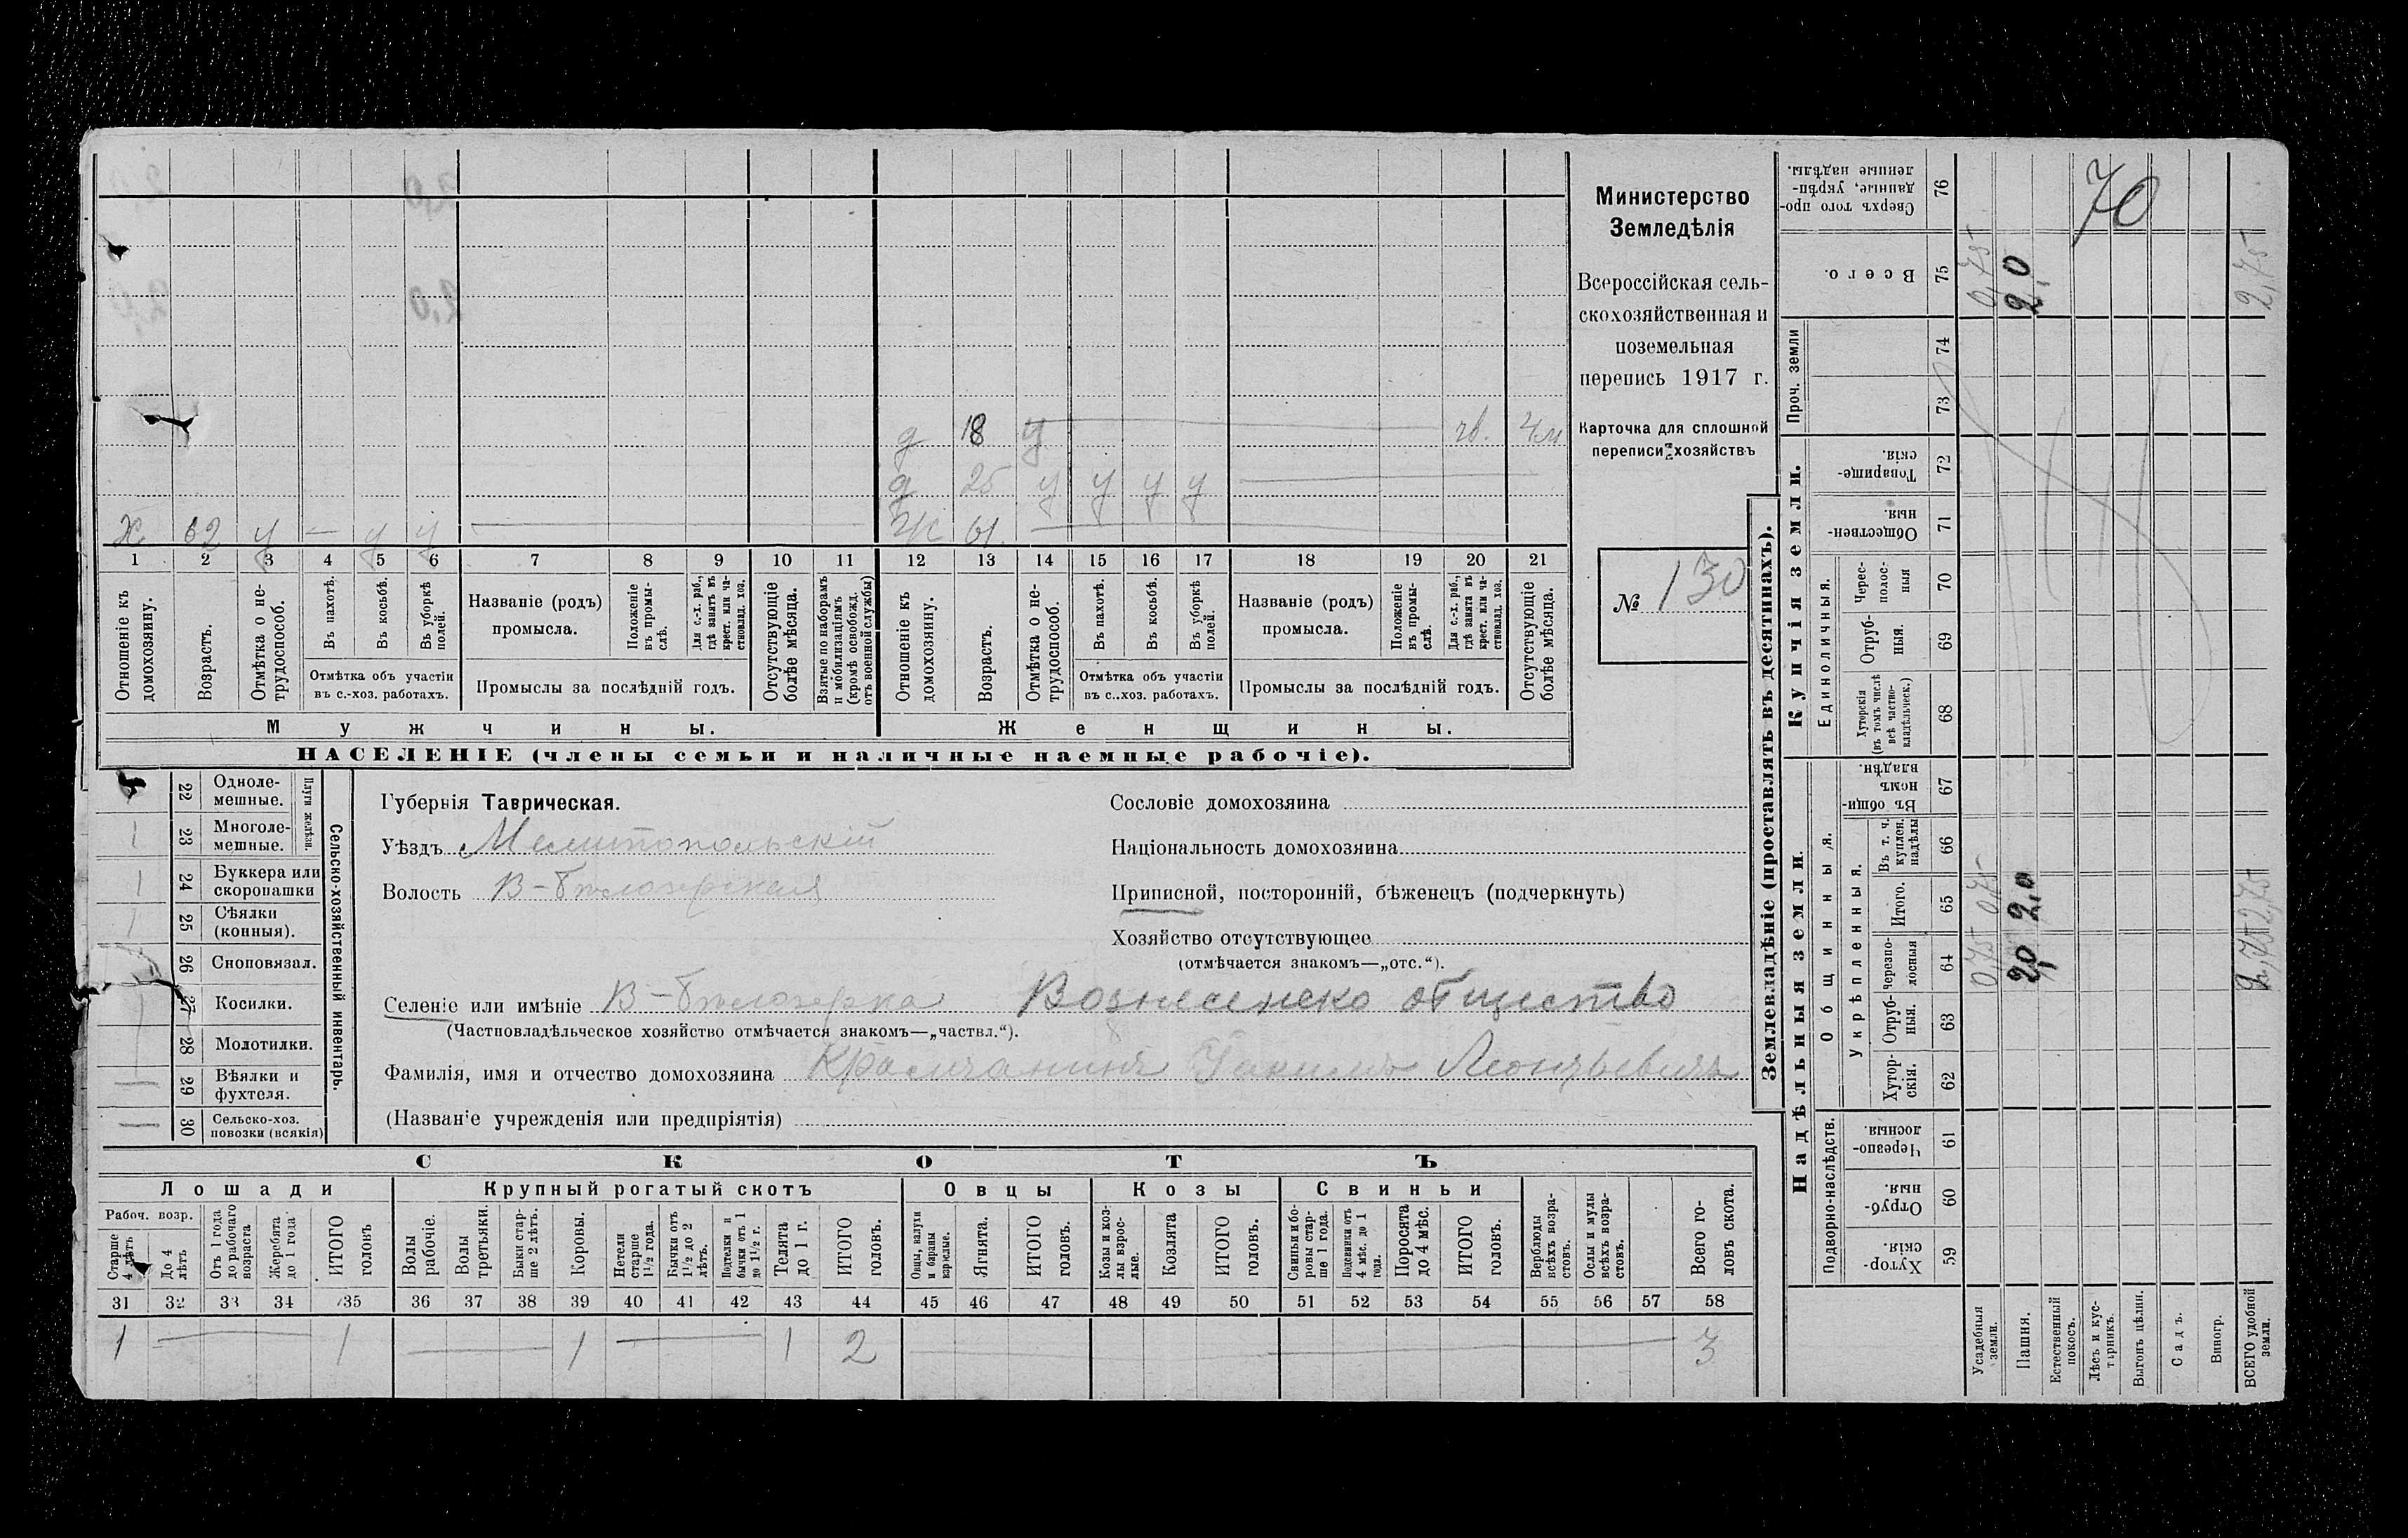 70
Министерство
Земледѣлія
Всероссійская сель-
скохозяйственная и
поземельная
перепись 1917 г.
Карточка для сплошной
переписи хозяйствъ
№ 130
д 18 у чв. 4м
д 25 у у у у
х 62 у — у у ж 61
1 2 3 4 5 6 7 8 9 10 11 12 13 14 15 16 17 18 19 20 21
Отношеніе къ домохозяину.
Возрастъ.
Отмѣтка о не-трудоспособ.
Въ пахотѣ.
Въ косьбѣ.
Въ уборкѣ полей.
Отмѣтка объ участіи
въ с.-хоз. работахъ.
Названіе (родъ)
промысла.
Положеніе въ промы-слѣ.
Для с.-х. раб., гдѣ занятъ въ крест. или ча-стновлад. хоз.
Промыслы за послѣдній годъ.
Отсутствующіе болѣе мѣсяца.
Взятые по наборамъ и мобилизаціямъ (кромѣ освобожд. отъ военной службы)
Отношеніе къ домохозяину.
Возрастъ.
Отмѣтка о не-трудоспособ.
Въ пахотѣ.
Въ косьбѣ.
Въ уборкѣ полей.
Отмѣтка объ участіи
въ с.-хоз. работахъ.
Названіе (родъ)
промысла.
Положеніе въ промы-слѣ.
Для с.-х. раб., гдѣ занята въ крест. или ча-стновлад. хоз.
Промыслы за послѣдній годъ.
Отсутствующіе болѣе мѣсяца.
Мужчины.
Женщины.
НАСЕЛЕНІЕ (члены семьи и наличные наемные рабочіе).
Сельско-хозяйственный инвентарь.
Плуги желѣзн.
22 Одноле-мешные.
1 23 Многоле-мешные.
1 24 Буккера или скоропашки
1 25 Сѣялки (конныя).
26 Сноповязал.
27 Косилки.
28 Молотилки.
29 Вѣялки и фухтеля.
30 Сельско-хоз. повозки (всякія)
Губернія Таврическая.
Уѣздъ Мелитопольскій
Волость В-Бѣлозерская
Сословіе домохозяина
Національность домохозяина
Приписной, посторонній, бѣженецъ (подчеркнуть)
Хозяйство отсутствующее
(отмѣчается знакомъ—„отс.“).
Селеніе или имѣніе В-Бѣлозерка Вознесенско общество
(Частновладѣльческое хозяйство отмѣчается знакомъ—„частвл.“).
Фамилія, имя и отчество домохозяина Леонтьевичъ
(Названіе учрежденія или предпріятія)
СКОТЪ
Лошади Крупный рогатый скотъ Овцы Козы Свиньи
Рабоч. возр.
Старше 4 лѣтъ
До 4 лѣтъ
Отъ 1 года до рабочаго возраста
Жеребята до 1 года
ИТОГО головъ
Волы рабочіе.
Волы третьяки.
Быки стар-ше 2 лѣтъ.
Коровы.
Нетели старше 1½ года.
Бычки отъ 1½ до 2 лѣтъ.
Подтелки и бычки отъ 1 до 1½ г.
Телята до 1 г.
ИТОГО головъ.
Овцы, валухи и бараны взрослые.
Ягнята.
ИТОГО головъ.
Козы и коз-лы взрос-лые.
Козлята
ИТОГО головъ.
Свиньи и бо-ровы стар-ше 1 года.
Подсвинки отъ 4 мѣс. до 1 года.
Поросята до 4 мѣс.
ИТОГО головъ.
Верблюды всѣхъ возра-стовъ.
Ослы и мулы всѣхъ возра-стовъ.
Всего го-ловъ скота.
31 32 33 34 35 36 37 38 39 40 41 42 43 44 45 46 47 48 49 50 51 52 53 54 55 56 57 58
1 1 1 1 2 3
Землевладѣніе (проставлять въ десятинахъ).
Надѣльныя земли.
Подворно-наслѣдств.
Хутор-скія. 59
Отруб-ныя. 60
Черезпо-лосныя. 61
Общинныя.
Укрѣпленныя.
Хутор-скія. 62
Отруб-ныя. 63
Черезпо-лосныя 64
Итого. 65
Въ т. ч. куплен. надѣлы 66
Въ общи-номъ владѣн. 67
Купчія земли.
Единоличныя.
Хуторскія (въ томъ числѣ всѣ частно-владѣльческ.) 68
Отруб-ныя. 69
Черес-полос-ныя 70
Обществен-ныя. 71
Товарище-скія. 72
Проч. земли
73 74
Всего. 75
Сверхъ того про-данные, укрѣп-ленные надѣлы. 76
Усадебныя земли. 0,75 0,75 0,75
Пашня. 2,0 2,0 2,0
Естественный покосъ.
Лѣсъ и кус-тарникъ.
Выгонъ цѣлин.
Садъ.
Виногр.
ВСЕГО удобной земли. 2,75 2,75 2,75